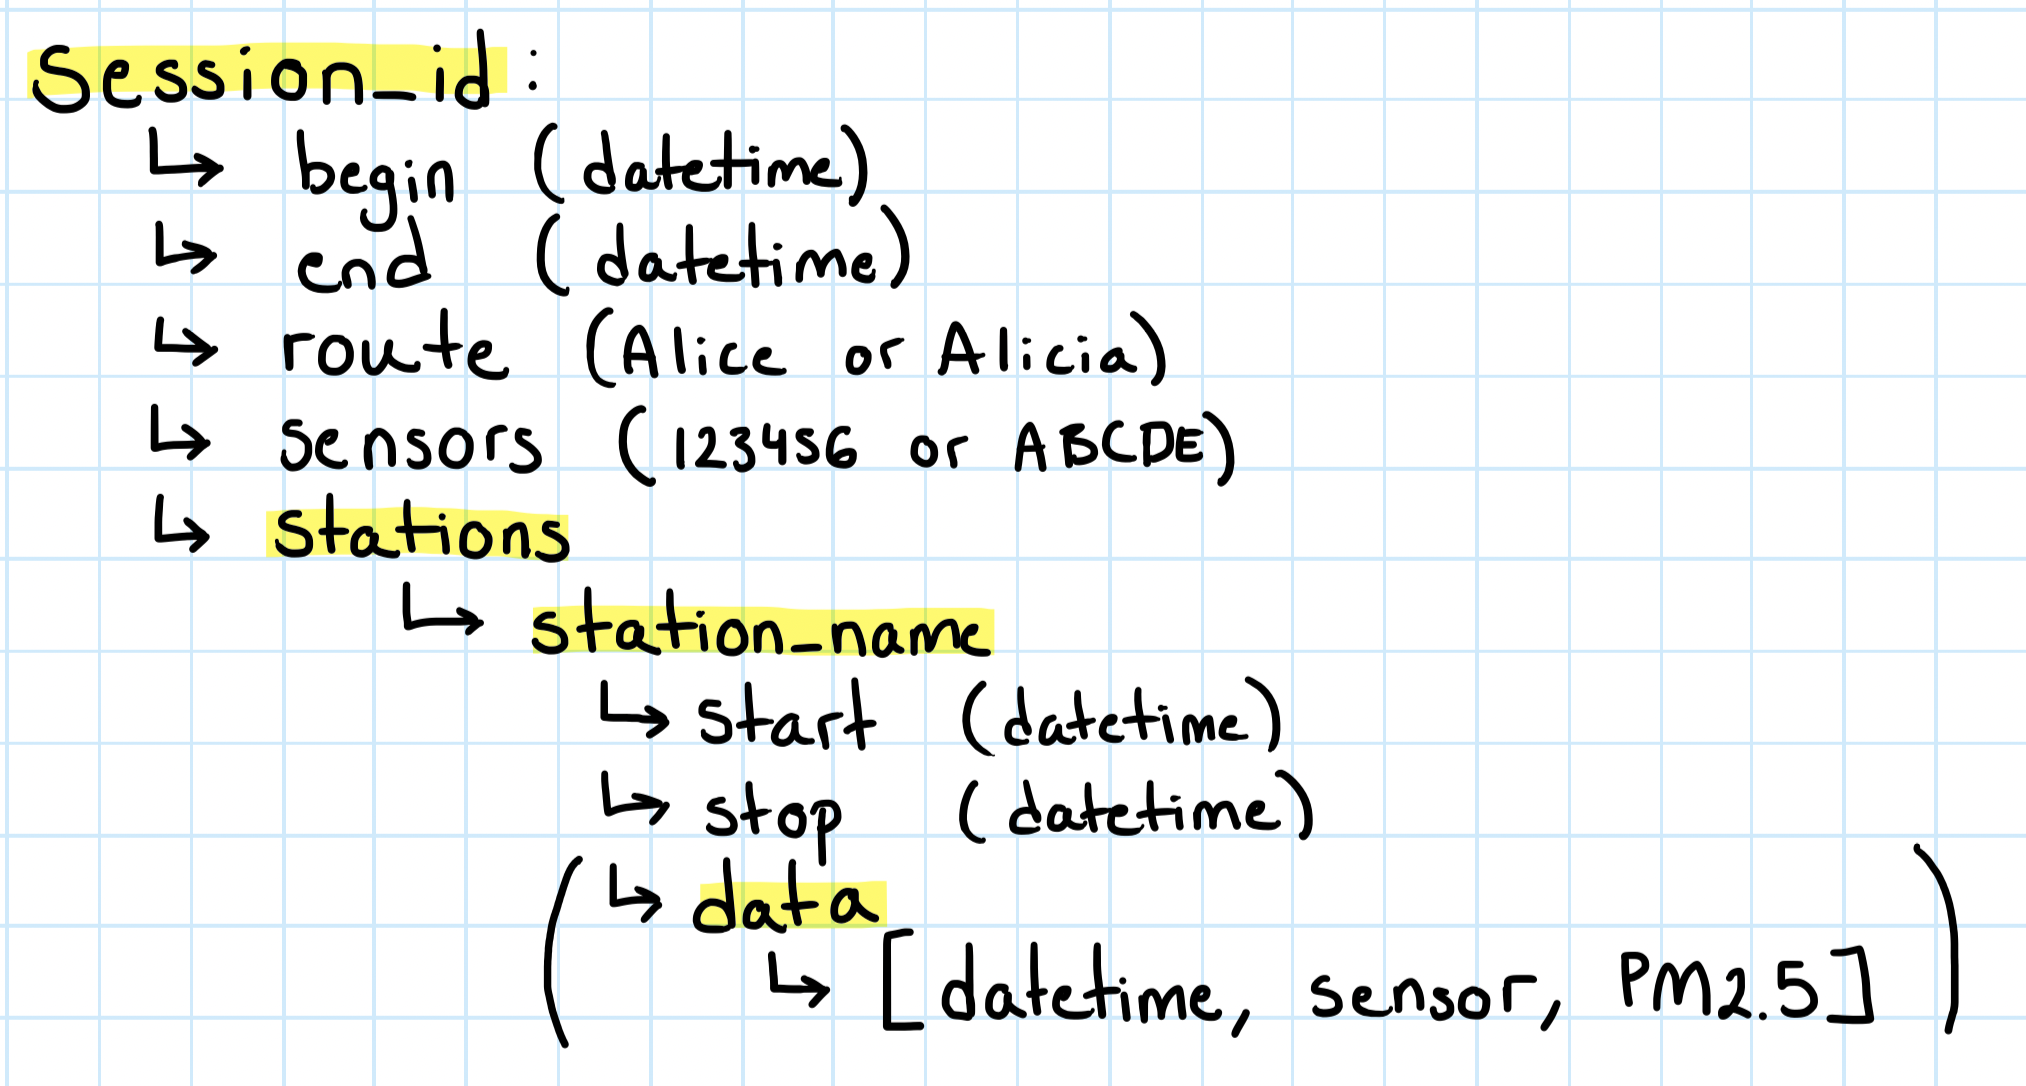 Session_id:
↳ begin (datetime)
↳ end (datetime)
↳ route (Alice or Alicia)
↳ sensors (123456 or ABCDE)
↳ stations
↳ station_name
↳ start (datetime)
↳ stop (datetime)
( ↳ data
↳ [datetime, sensor, PM2.5] )